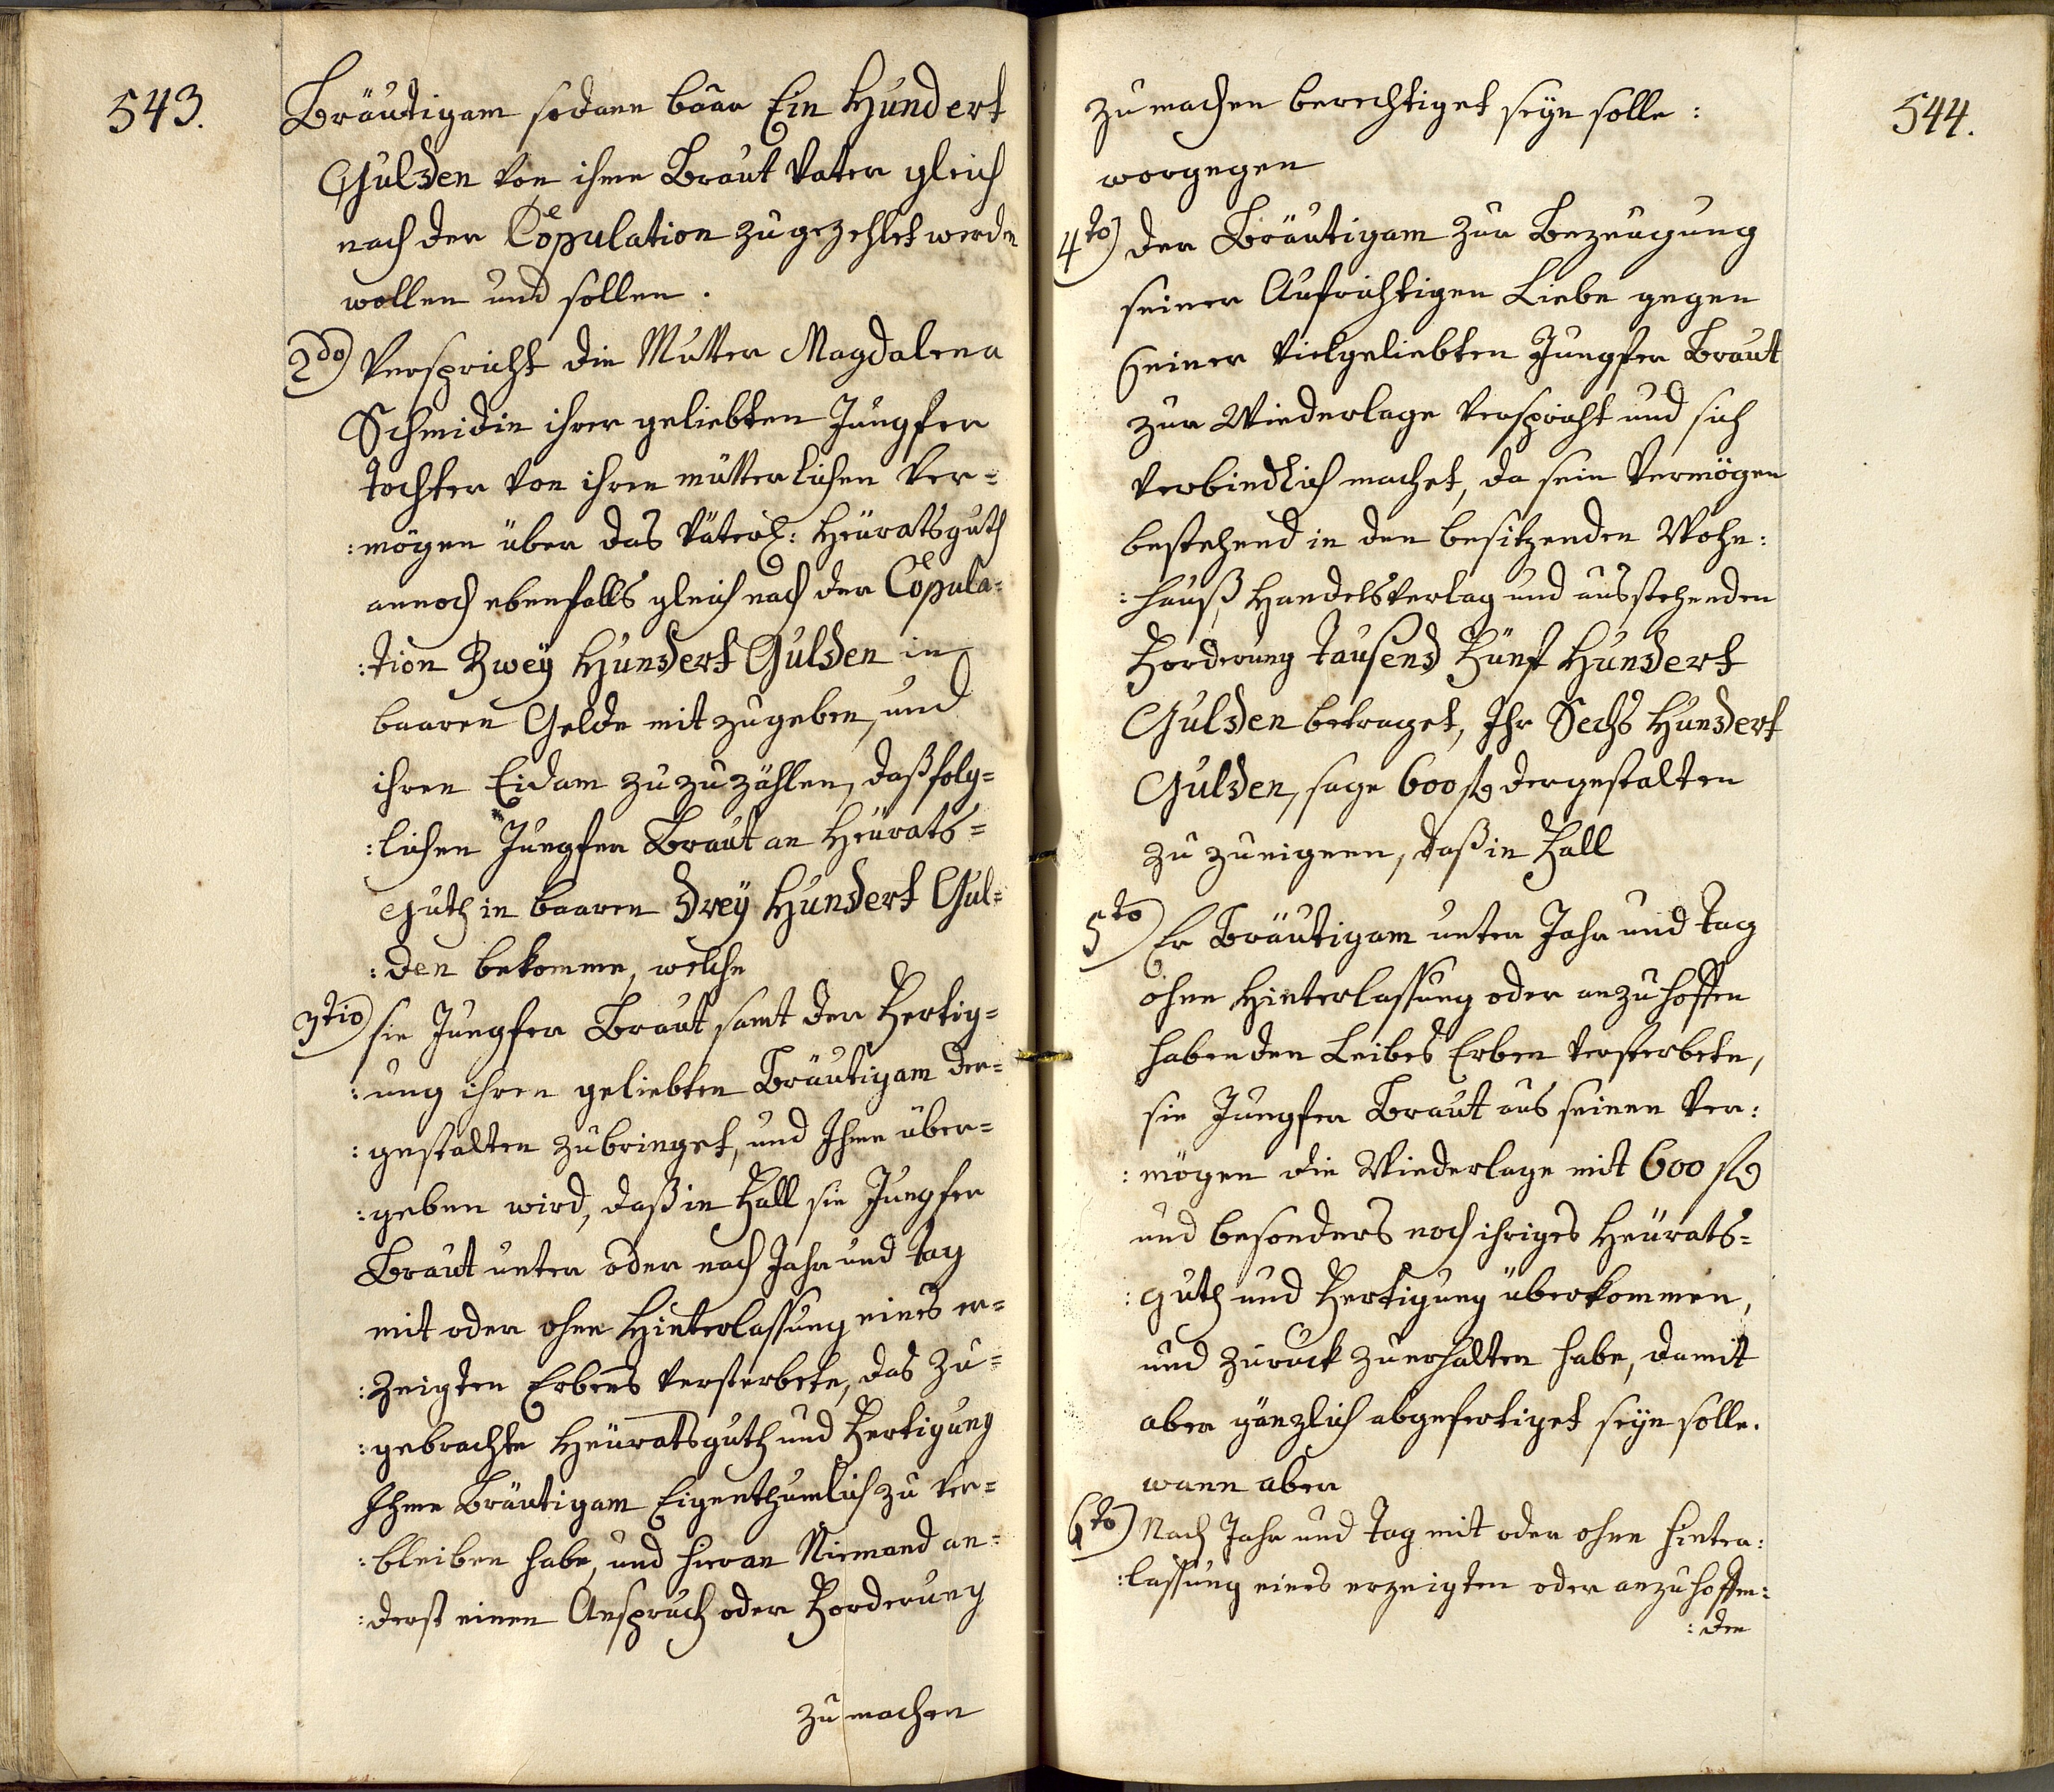 543.
Bräutigam sodann baar Ein Hundert
Gulden von ihme Braut Vater gleich
nach der Copulation zugezehlet werden
wollen und sollen.
2do) Verspricht die Mutter Magdalena
Schmidin ihrer geliebten Jungfer
Tochter von ihren mütterlichen Ver=
:mögen über das Väterl: Heüratsguth
annoch ebenfalls gleich nach der Copula=
:tion Zweÿ Hundert Gulden in
baaren Gelde mitzugeben, und
ihren Eidam zuzuzählen, daß folg=
:lichen Jungfer Braut an Heürats=
Guth in baaren Dreÿ Hundert Gul=
:den bekomme, welche
3tio) sie Jungfer Braut samt der Fertig=
:ung ihren geliebten Bräutigam der=
:gestalten zubringet, und Ihme über=
:geben wird, daß in Fall sie Jungfer
Braut unter oder nach Jahr und Tag
mit oder ohne Hinterlassung eines er=
:zeigten Erbens versterbete, das zu=
:gebrachte Heüratsguth und Fertigung
Ihme Bräutigam Eigenthumlich zu ver=
:bleiben habe, und hieran Niemand an=
:derst einen Anspruch oder Forderung
zu machen
544.
zu machen berechtiget seÿn solle:
worgegen
4to) der Bräutigam zur Bezeugung
seiner Aufrichtigen Liebe gegen
seiner Vielgeliebten Jungfer Braut
zur Wiederlage verspricht und sich
verbindlich machet, da sein Vermögen
bestehend in den besitzenden Wohn:
:hauß Handelsverlag und ausstehenden
Forderung Tausend Fünf Hundert
Gulden betraget, Ihr Sechs Hundert
Gulden, sage 600 fl dergestalten
zu zueignen, daß in Fall
5to) Er Bräutigam unter Jahr und Tag
ohne Hinterlassung oder anzuhoffen
habenden Leibes Erben versterbete,
sie Jungfer Braut aus seinen Ver:
:mögen die Wiederlage mit 600 fl
und besonders noch ihriges Heürats=
:guth und Fertigung überkommen,
und zuruck zuerhalten habe, damit
aber gänzlich abgefertiget seÿn solle.
wann aber
6to) Nach Jahr und Tag mit oder ohne Hinter:
:lassung eines erzeigten oder anzuhoffen:
:den